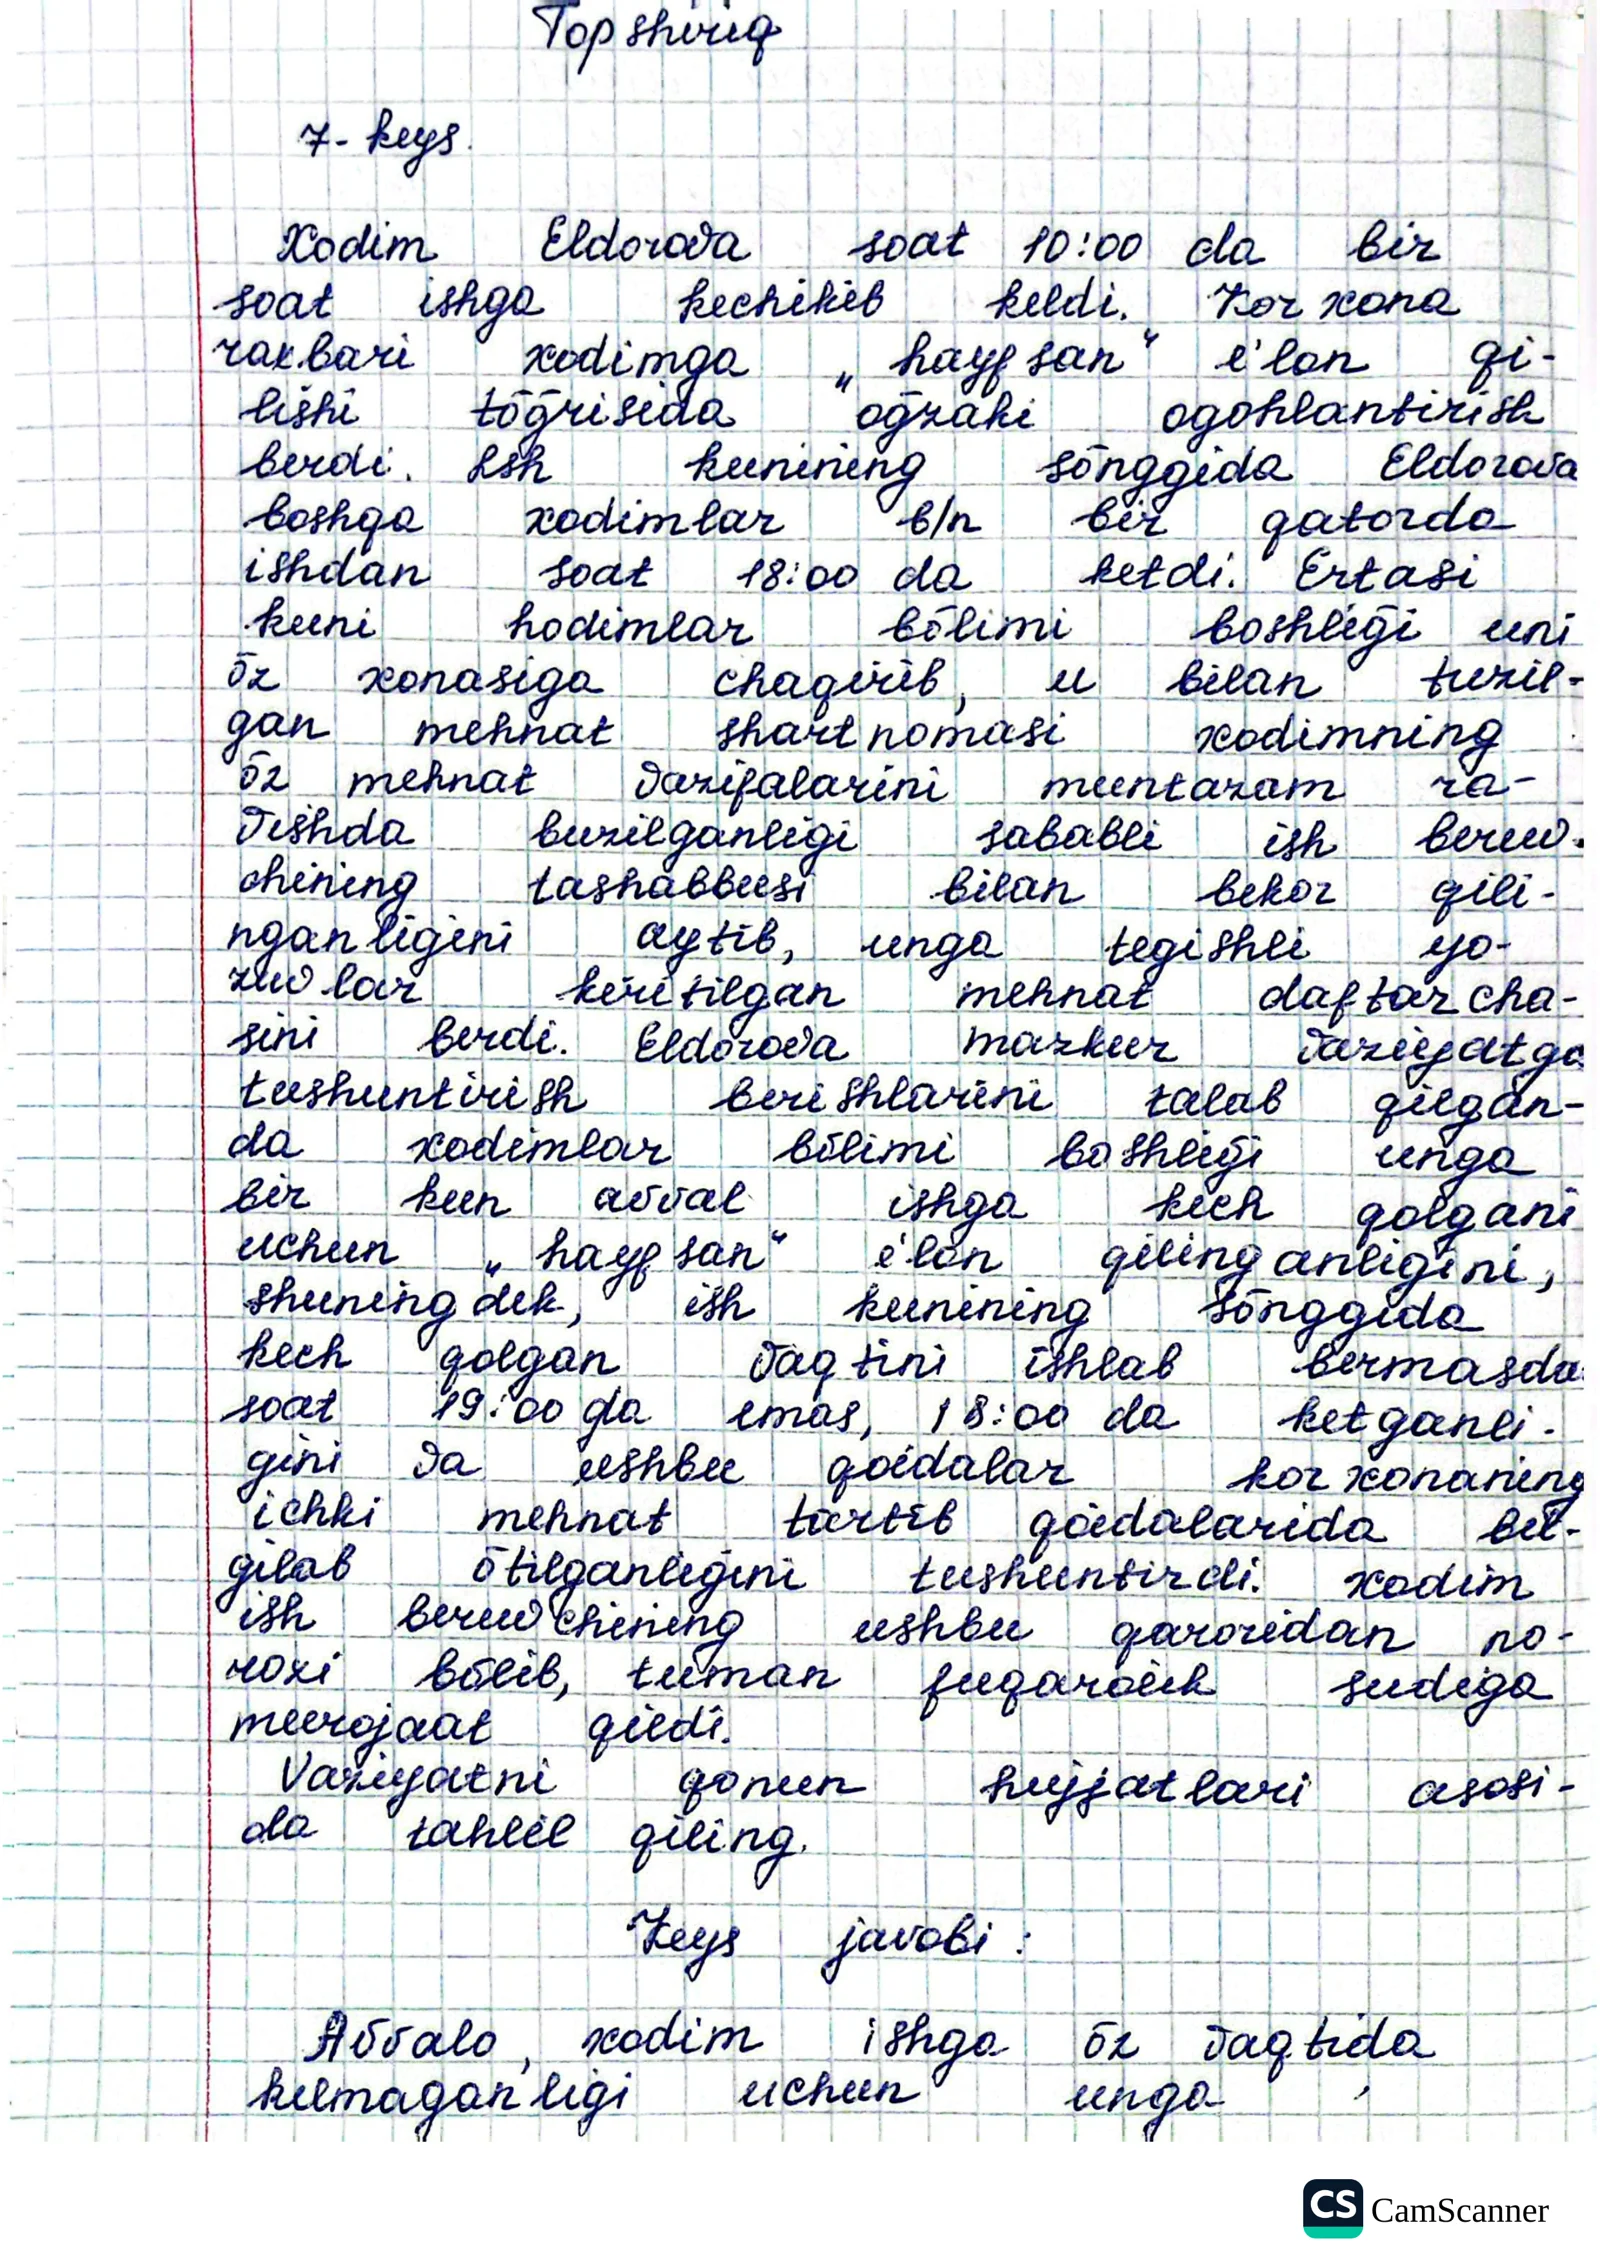 Topshiriq
7- keys.
Xodim Eldorova soat 10:00 da bir
soat ishga kechikib keldi. Korxona
raxbari xodimga „hayfsan“ e'lon qi-
lishi tōğrisida oğzaki ogohlantirish
berdi. Ish kunining sōnggida Eldorova
boshqa xodimlar b/n bir qatorda
ishdan soat 18:00 da ketdi. Ertasi
kuni hodimlar bōlimi boshliği uni
ōz xonasiga chaqirib, u bilan tuzil-
gan mehnat shartnomasi xodimning
ōz mehnat vazifalarini muntazam ra-
vishda buzilganligi sababli ish beruv-
chining tashabbusi bilan bekor qili-
nganligini aytib, unga tegishli yo-
zuvlar kiritilgan mehnat daftarcha-
sini berdi. Eldorova mazkur vaziyatga
tushuntirish berishlarini talab qilgan-
da xodimlar bōlimi boshliği unga
bir kun avval ishga kech qolgani
uchun „hayfsan“ e'lon qilinganligini,
shuningdek, ish kunining sōnggida
kech qolgan vaqtini ishlab bermasda
soat 19:00 da emas, 18:00 da ketganli-
gini va ushbu qoidalar korxonaning
ichki mehnat tartib qoidalarida bel-
gilab ōtilganligini tushuntirdi. xodim
ish beruvchining ushbu qaroridan no-
rozi bōlib, tuman fuqarolik sudiga
murojaat qildi.
Vaziyatni qonun hujjatlari asosi-
da tahlil qiling.
Keys javobi:
Avvalo, xodim ishga ōz vaqtida
kelmaganligi uchun unga
CS CamScanner